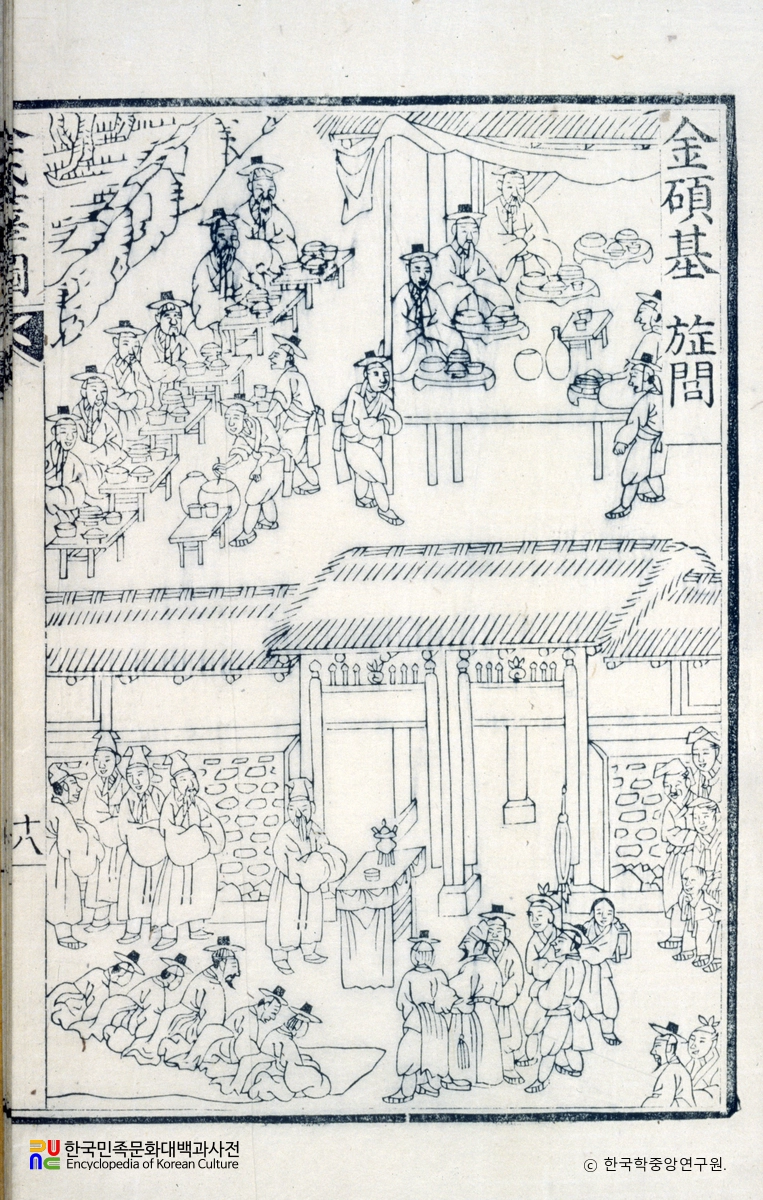 金碩基 旌閭
十八
한국민족문화대백과사전
Encyclopedia of Korean Culture
ⓒ 한국학중앙연구원.